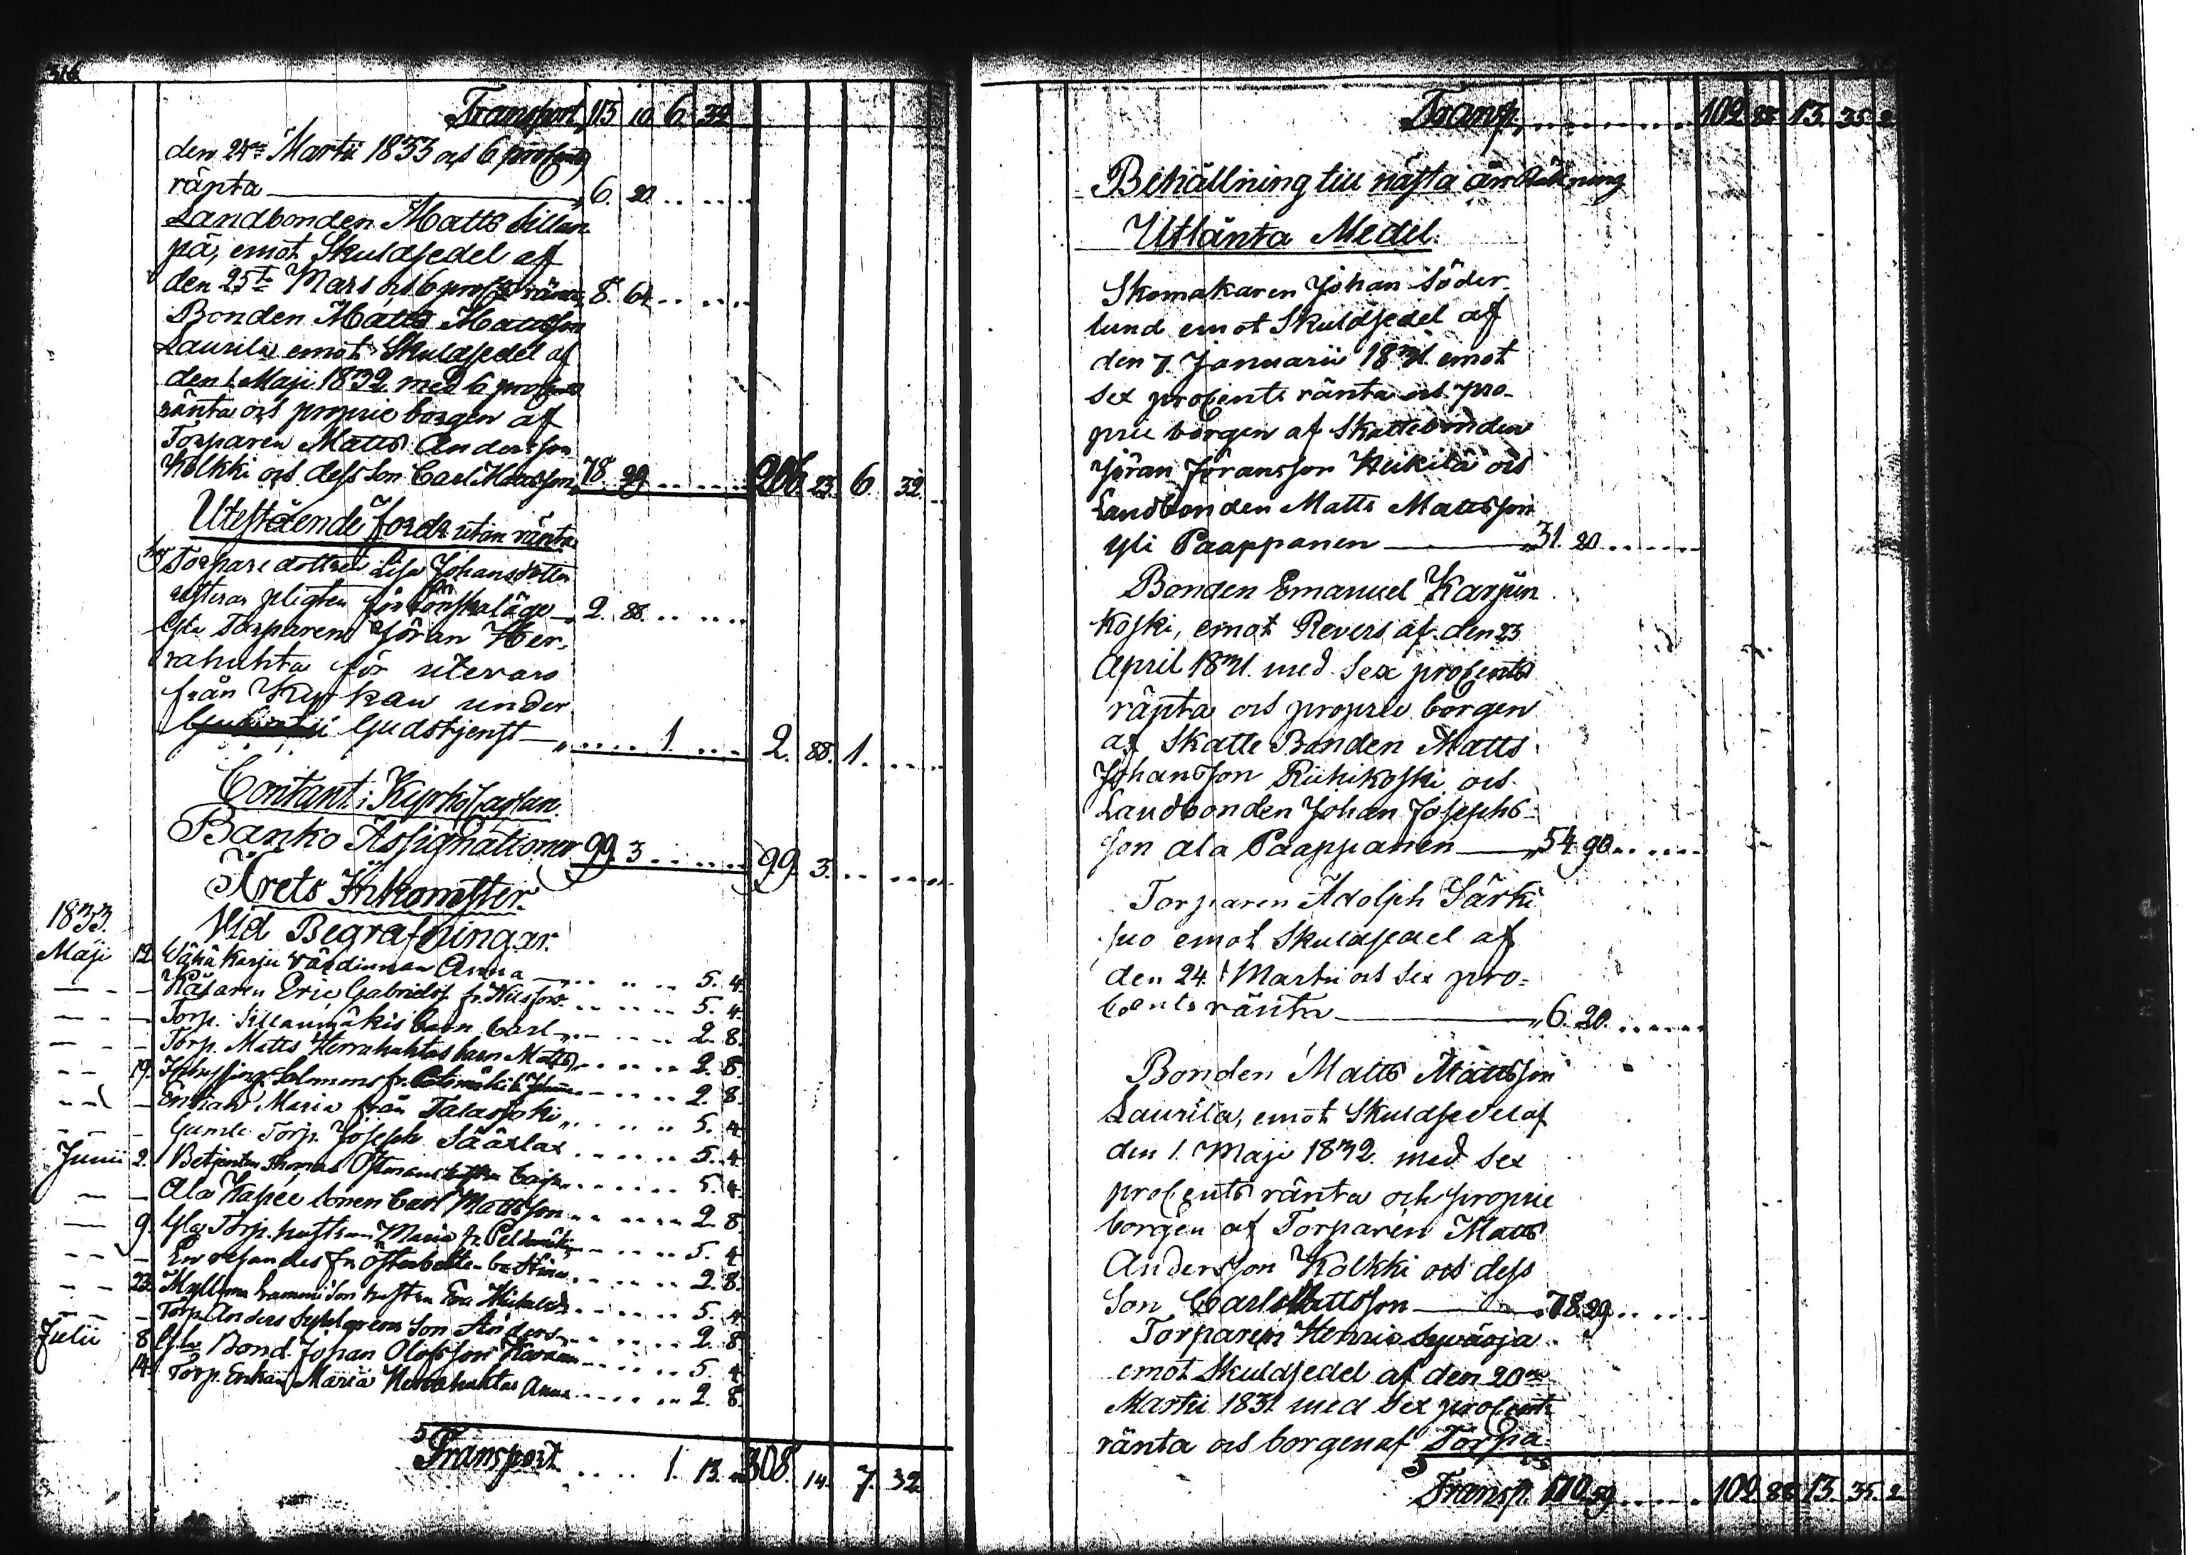 316
Transport 113 10 6. 32
den 24de Martii 1833 och 6 procents
ränta 6. 20
Landbonden Matts Sillan
pä, emot Skuldsedel af
den 25te Mars och 6 proc ränta 8. 64
Bonden Matts Mattsson
Laurila emot Skuldsedel af
den 1. Maji 1832 med 6 procents
ränta och proprie borgen af
Torparen Matts Andersson
Kolkki och dess Son Carl Mattsson 78. 29 206. 23. 6. 32
Utestående fordr utan ränta
Torpare dottren Lisa Johansdotter
resterar pligten för lönskaläge 2. 88
Gla Torparen Jöran Her-
rahuhta för utevaro
från Kyrkan under
Gudstjenst 1. 2. 88. 1.
Contant i Kyrko Cassan.
Banko Assignationer 99. 3 99. 3.
Årets Inkomster.
Vid Begrafningar.
1833.
Maji 12 Wähä Karju värdinnan Anna 5. 4.
Eric Gabrielss. fr. 5. 4.
Torp. Sillanmäkis barn Carl 2. 8.
Torp. Matts Herrahuhtas barn Matts 2. 8.
19. Salomons fr. 2. 8.
Enkian Maria från Talasjoki 5. 4.
Gamle Torp. Joseph Säärlax 5. 4.
Junii 2. Betjenten Thomas Östmans Caisa 5. 4.
Ala Sonen Carl Mattsson 2. 8.
9. Gla Torp. hustrun Maria fr. 5. 4.
En resandes fr Österbotten b. Stina 2. 8.
23. Son hustru Eva 5. 4.
Torp. Anders Son Anders 2. 8.
Julii 8 Gla Bond. Johan Olofsson 5. 4
14. Torp. Enkan Maria Herrahuhtas Anna 2. 8.
5 Transport 1. 13. 308. 14. 7. 32.
Transp. 102. 88. 13. 35. 2
Behållning till nästa års Räkning
Utlänta Medel.
Skomakaren Johan Söder-
lund emot Skuldsedel af
den 7. Januarii 1831. emot
sex procents ränta och pro-
prie borgen af Skattebonden
Jöran Jöransson Heikilä och
Landbonden Matts Mattsson
Yli Paappanen 31. 20
Bonden Emanuel Karjun
koski, emot Revers af den 23
April 1831. med Sex procents
ränta och proprie borgen
af Skatte Bonden Matts
Johansson Riihikoski och
Landbonden Johan Josephs-
son ala Paappanen 54. 90
Torparen Adolph Särki
suo emot Skuldsedel af
den 24. Martii och Sex pro-
cents ränta 6. 20.
Bonden Matts Mattsson
Laurila, emot Skuldsedel af
den 1. Maji 1832. med Sex
procents ränta och proprie
borgen af Torparen Matts
Andersson Kolkki och dess
Son Carl Mattsson 78. 29
Torparen Henric Syväoja
emot Skuldsedel af den 20de
Martii 1831 med Sex procents
ränta och borgen af Torpa-
5 Transp. 170. 59 102. 88 13. 35. 2